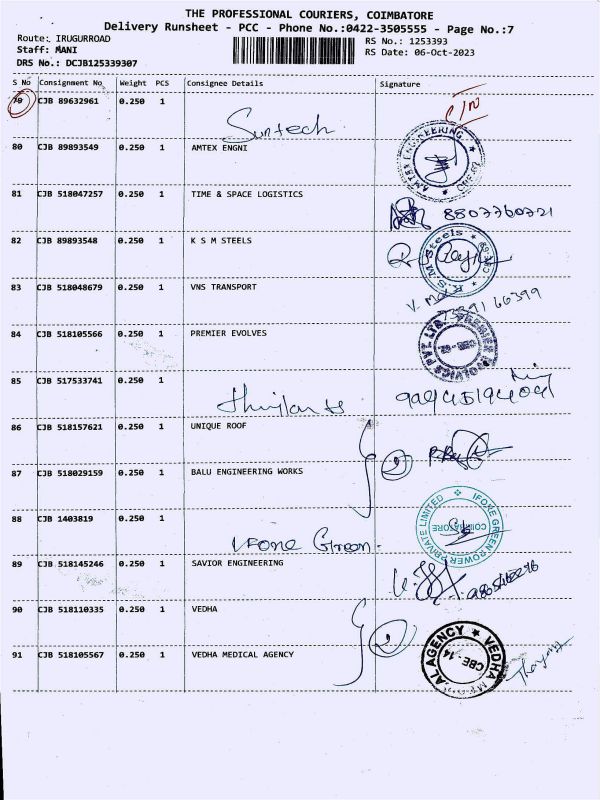 THE PROFESSIONAL COURIERS, COIMBATORE
Delivery Runsheet - PCC - Phone No.:0422-3505555 - Page No.:7
Route: IRUGURROAD
RS No.: 1253393
Staff: MANI
RS Date: 06-Oct-2023
DRS No.: DCJB125339307
S No Consignment No Weight PCS Consignee Details Signature
79 CJB 89632961 0.250 1
Suntech
80 CJB 89893549 0.250 1 AMTEX ENGNI
AMTEX ENGINEERING
81 CJB 518047257 0.250 1 TIME & SPACE LOGISTICS
8807760721
82 CJB 89893548 0.250 1 K S M STEELS
K.S.M. Steels
83 CJB 518048679 0.250 1 VNS TRANSPORT
84 CJB 518105566 0.250 1 PREMIER EVOLVES
85 CJB 517533741 0.250 1
86 CJB 518157621 0.250 1 UNIQUE ROOF
87 CJB 518029159 0.250 1 BALU ENGINEERING WORKS
88 CJB 1403819 0.250 1
IFOXE GREEN POWER PRIVATE LIMITED
COIMBATORE
89 CJB 518145246 0.250 1 SAVIOR ENGINEERING
90 CJB 518110335 0.250 1 VEDHA
91 CJB 518105567 0.250 1 VEDHA MEDICAL AGENCY
VEDHA
AL AGENCY
CBE-14